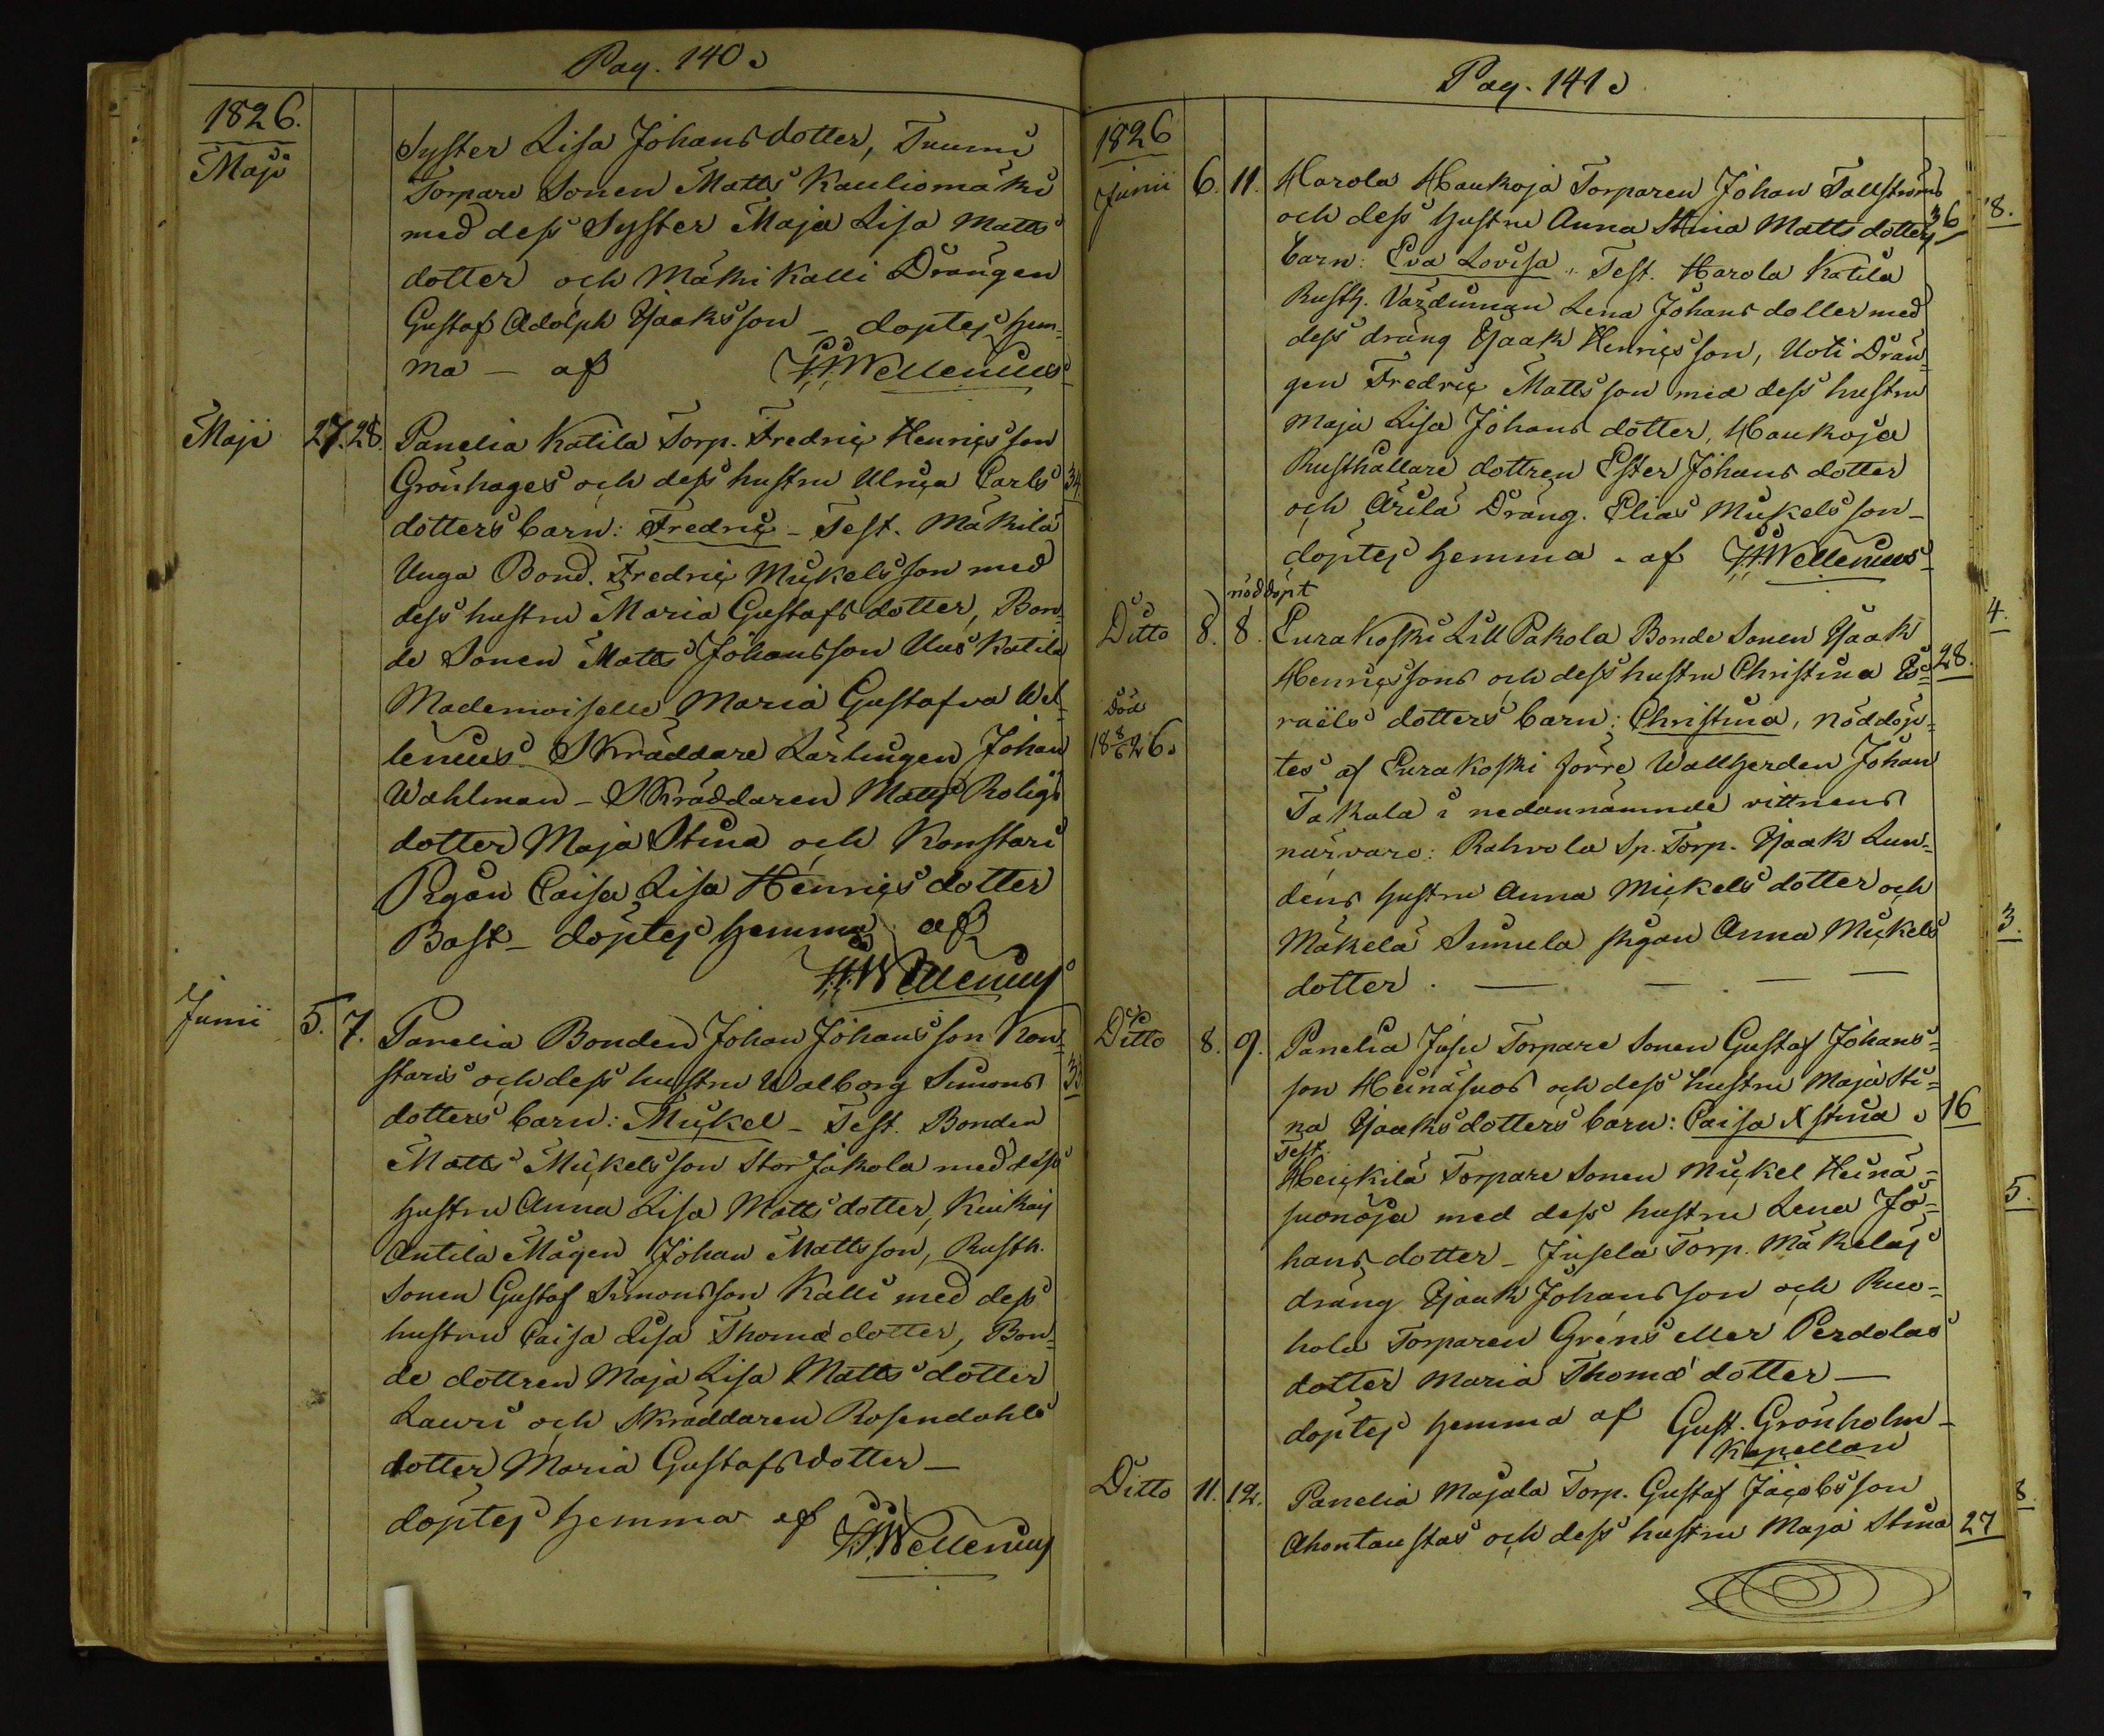 Pag. 140
1826.
Maji
Syster Lisa Johansdotter, Tuumi
Torpare Sonen Matts Kauliomäki
med dess Syster Maja Lisa Matts
dotter och Mäkikalli Drängen
Gustaf Adolph Isaksson – döptes hem-
ma – af H. Wellenius
Maji 27. 28. Panelia Katila Torp. Fredric Henricsson
Grönhages och dess hustru Ulrica Carls 34.
dotters barn: Fredric – Test. Mäkilä
Unga Bond. Fredric Mickelsson med
dess hustru Maria Gustafsdotter, Bon-
de Sonen Matts Johansson Uus Katila
Mademoiselle Maria Gustafva Wel-
lenius Skräddare Lärlingen Johan
Wahlman – Skräddaren Matts Roligs
dotter Maja Stina och Konstari
Pigan Caisa Lisa Henricsdotter
Bast – döptes hemma af
H. Wellenius
Junii 5. 7. Panelia Bonden Johan Johansson Kon-
staris och dess hustru Walborg Simons 33
dotters barn: Mickel – Test. Bonden
Matts Mickelsson Stor Jakola med dess
hustru Anna Lisa Mattsdotter, Kiukais
Antila Mågen Johan Mattsson, Rusth.
Sonen Gustaf Simonsson Kalli med dess
hustru Caisa Lisa Thomædotter, Bon-
de dottren Maja Lisa Matts dotter
Lauri och Skräddaren Rosendahls
dotter Maria Gustafsdotter –
döptes hemma af H. Wellenius
Pag. 141
1826
Junii 6. 11. Harola Haukoja Torparen Johan Tallströms
och dess hustru Anna Stina Mattsdotters 36 8.
barn: Eva Lovisa. Test. Harola Katila
Rusth. Värdinnan Lena Johansdotter med
dess dräng Isaak Henricsson, Uoti Drän-
gen Fredric Mattsson med dess hustru
Maja Lisa Johans dotter, Haukoja
Rusthållare dottren Ester Johans dotter
och Ärilä Dräng. Elias Mickelsson –
döptes hemma – af H. Wellenius
nöddöpt
Ditto 8. 8. Eurakoski Lill Pakola Bonde Sonen Isaak 4.
Henricssons och dess hustru Christina Es- 28.
raëls dotters barn: Christina, nöddöp-
Död
18 8/6 26.
tes af Eurakoski förre Wallherden Johan
Takala i nedannämnde vittnens
närvaro: Rahvola Sp. Torp. Isaak Lun-
dens hustru Anna Mickelsdotter och
Mäkelä Simula pigan Anna Mickels 3.
dotter. — — —
Ditto 8. 9. Panelia Jusu Torpare Sonen Gustaf Johans-
son Heinäsuos och dess hustru Maja Sti-
na Isaksdotters barn: Caisa Xstina 16
Test.
Heickilä Torpare Sonen Mickel Heinä-
suonoja med dess hustru Lena Jo- 5.
hansdotter – Jusela Torp. Mäkeläs
dräng Isaak Johansson och Ruo-
hola Torparen Gréns eller Perdolas
dotter Maria Thomædotter —
döptes hemma af Gust. Grönholm –
Kapellan
Ditto 11. 12. Panelia Majala Torp. Gustaf Jacobsson 8.
Ahontaustas och dess hustru Maja Stina 27